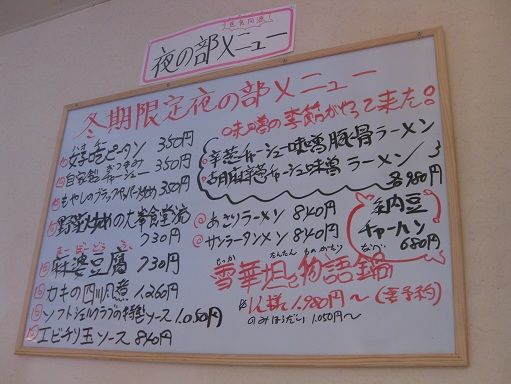 夜の部メニュー
冬期限定夜の部メニュー
好吃ピータン 350円
自家製チャーシュー 350円
もやしのブラックペッパー炒め 350円
野菜炒めの大華食堂流
730円
麻婆豆腐 730円
カキの四川煮 1,260円
ソフトシェルクラブの特製ソース 1,050円
エビチリ玉ソース 840円
味噌の季節がやって来た!
辛葱チャーシュー味噌豚骨ラーメン
胡麻辛葱チャーシュー味噌ラーメン
各980円
あごりラーメン 840円
サンラータンメン 840円
納豆
チャーハン
680円
雪華坦々物語鍋
せっか たんたん ものがたり なべ
1人様 1,980円〜 (要予約)
のみほうだい 1,050円〜